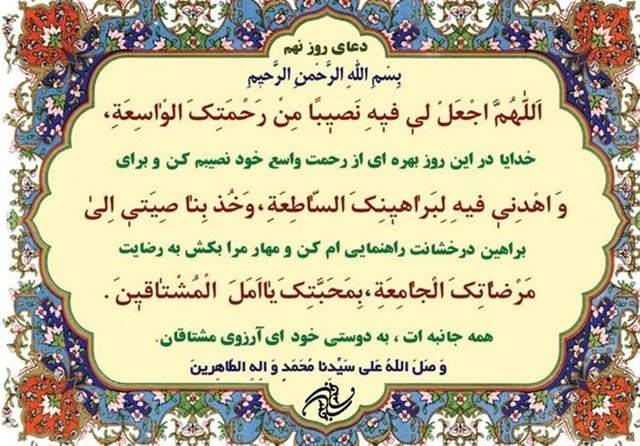 دعای روز نهم
بِسْمِ اللهِ الرَّحْمنِ الرَّحیمِ
اَللّهُمَّ اجْعَلْ لي فيهِ نَصيبًا مِنْ رَحْمَتِکَ الواسِعَةِ،
خدایا در این روز بهره ای از رحمت واسع خود نصیبم کن و برای
وَ اهْدِني فيهِ لِبَراهينِکَ السّاطِعَةِ،وَخُذ بِنا صِيَتي اِلیٰ
براهین درخشانت راهنمایی ام کن و مهار مرا بکش به رضایت
مَرْضاتِکَ الْجامِعَةِ،بِمَحَبَّتِکَ يااَمَلَ الْمُشْتاقينَ.
همه جانبه ات ، به دوستی خود ای آرزوی مشتاقان.
وَ صَلَ اللهُ عَلی سَیِّدنا مُحَمَدٍ وَ الِهِ الطاهِرینَ